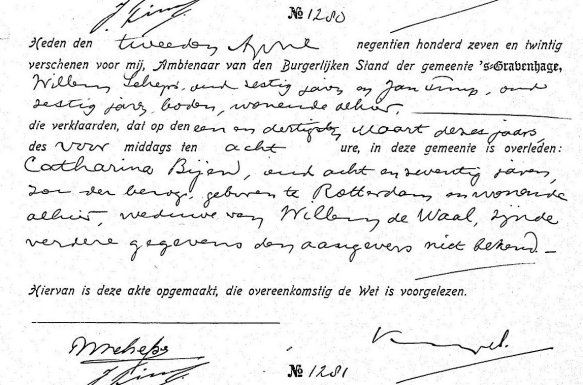 № 1280
Heden den tweeden April negentien honderd zeven en twintig
verschenen voor mij, Ambtenaar van den Burgerlijken Stand der gemeente 's-Gravenhage,
Willem Scheps, oud zestig jaren en Jan Timp, oud
zestig jaren, boden, wonende alhier,
die verklaarden, dat op den een en dertigsten Maart dezes jaars,
des voor middags ten acht ure, in deze gemeente is overleden:
Catharina Bijen, oud acht en zeventig jaren,
zonder beroep, geboren te Rotterdam en wonende
alhier, weduwe van Willem de Waal, zijnde
verdere gegevens den aangevers niet bekend.
Hiervan is deze akte opgemaakt, die overeenkomstig de Wet is voorgelezen.
WScheps
№ 1281